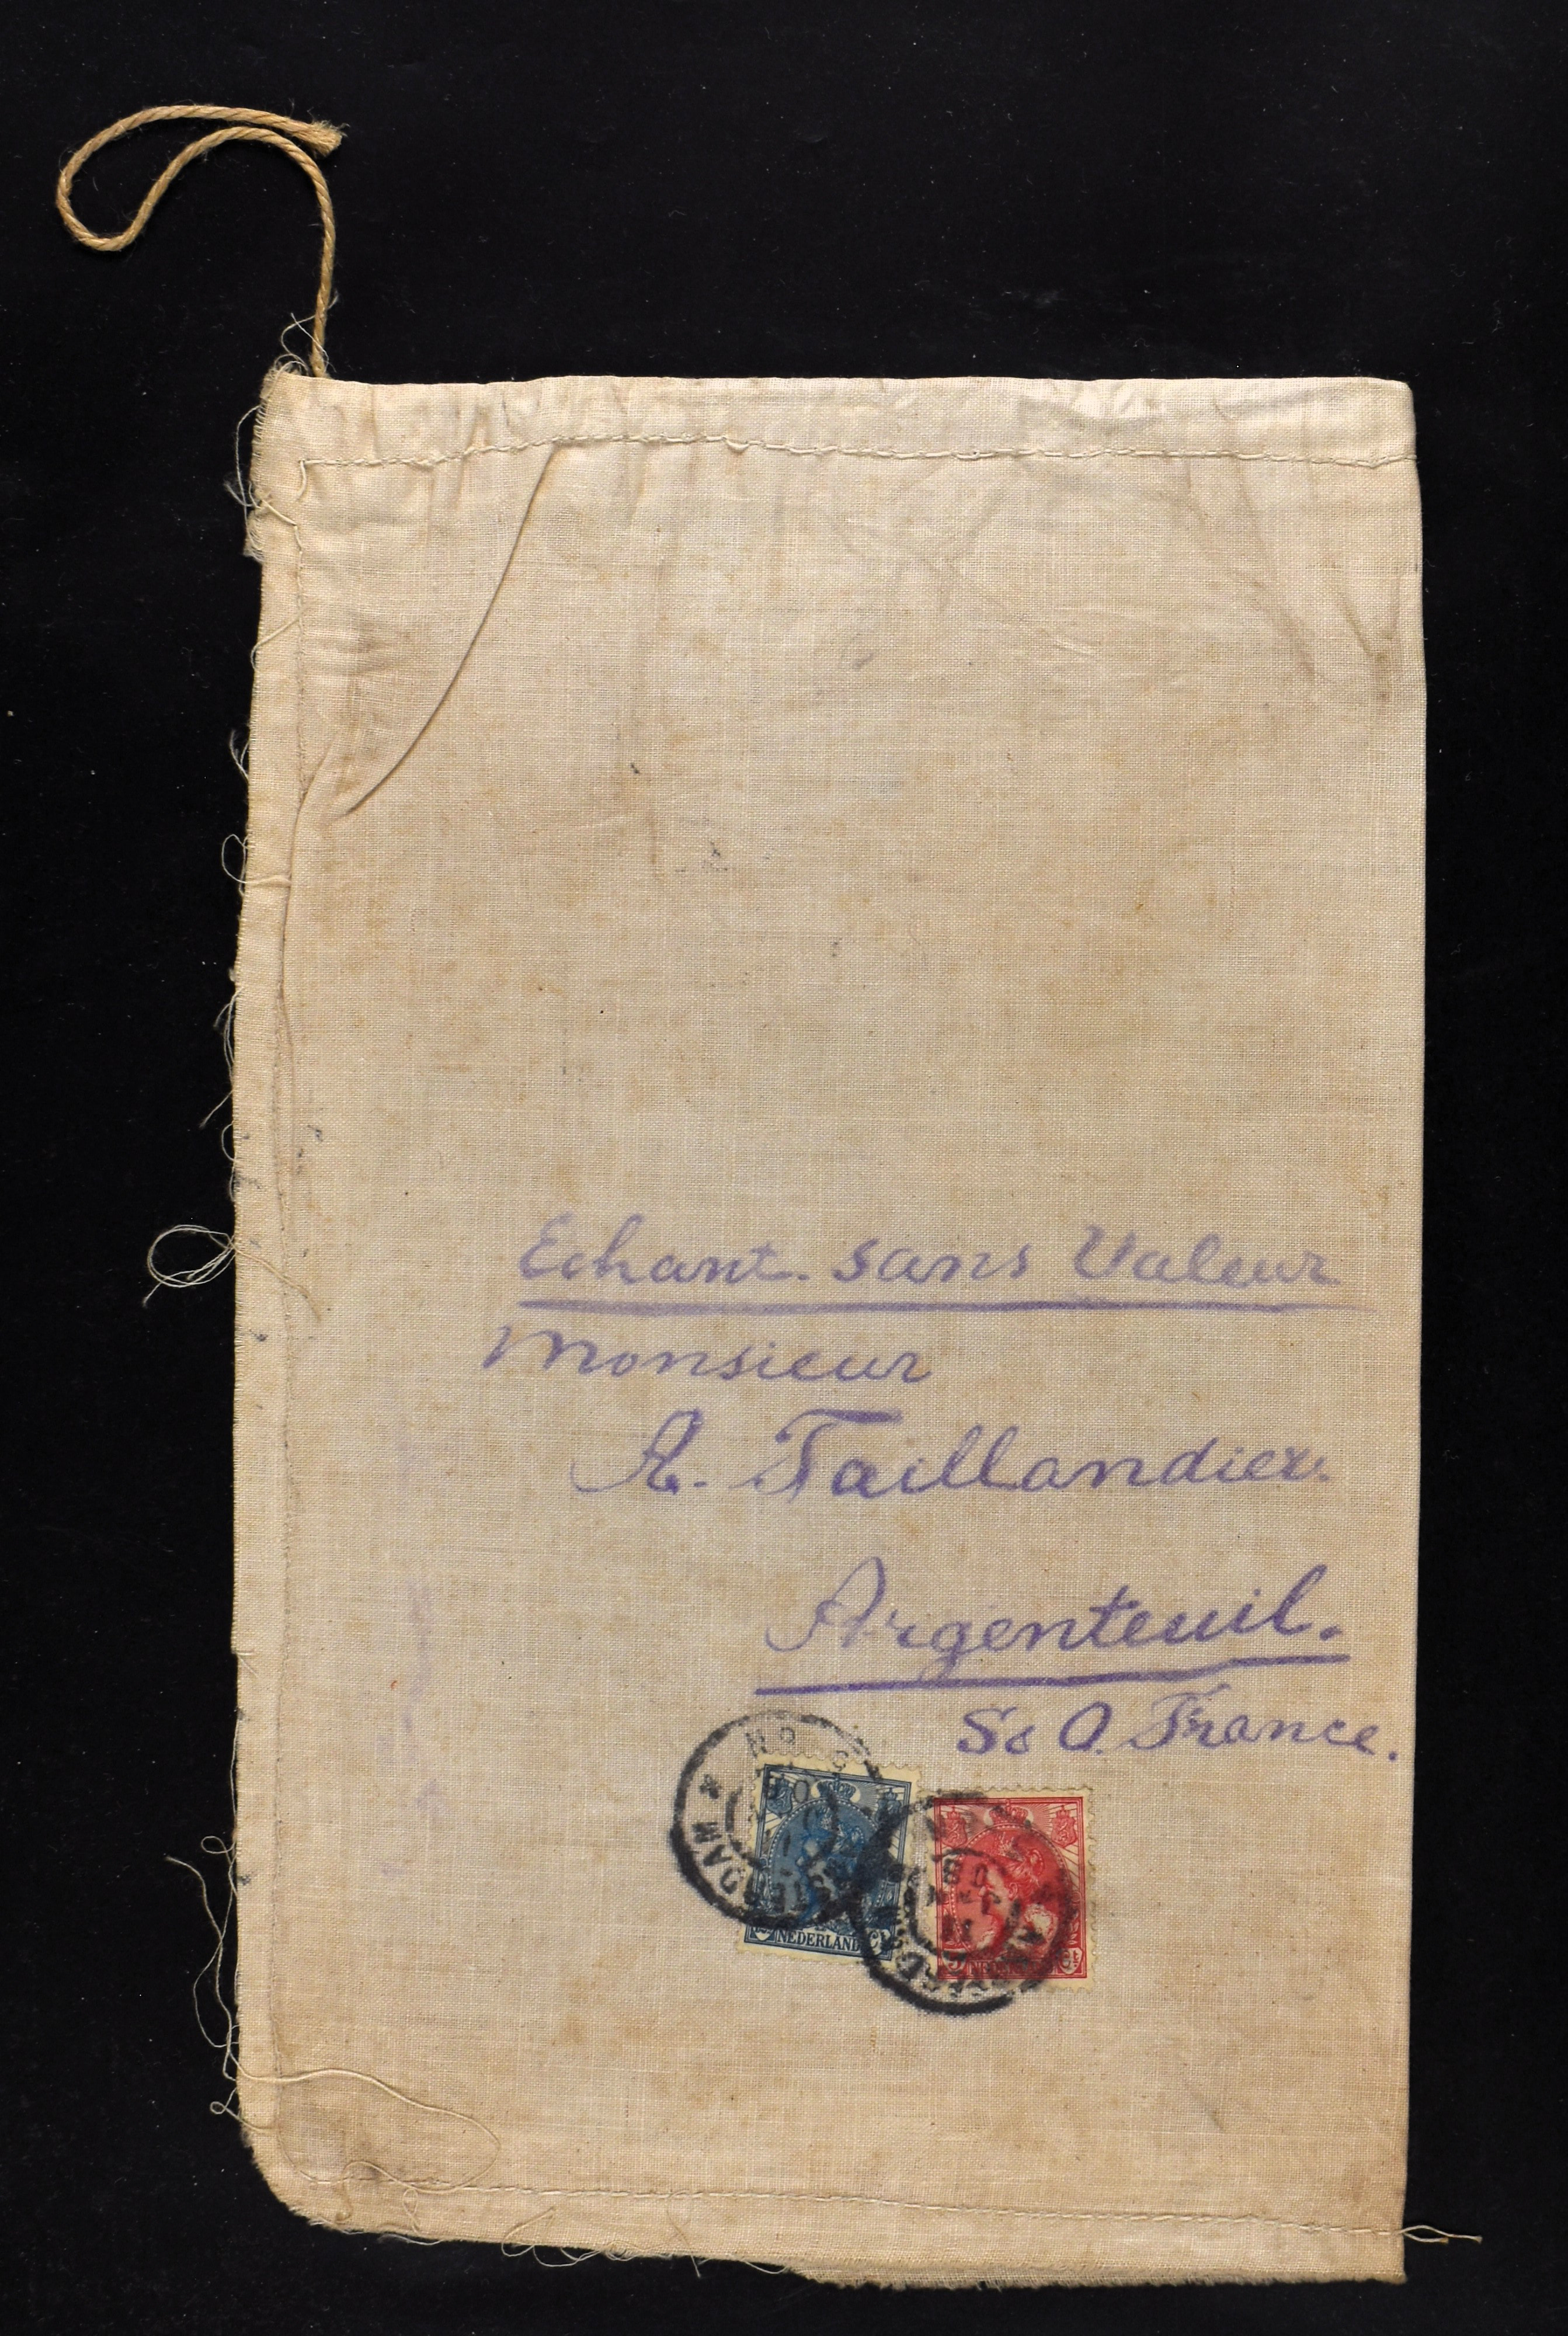 Echant. sans Valeur
Monsieur
A. Taillandier.
Argenteuil.
S&O. France.
NEDERLAND